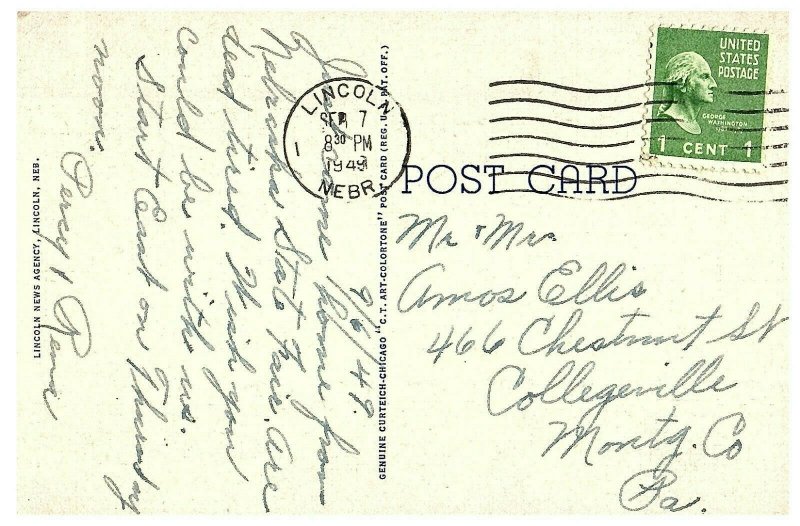 9/6/49
Just came home from
Nebraska State Fair. Are
dead tired. Wish you
could be with us.
Start East on Thursday
noon.
Percy & Rena
LINCOLN NEWS AGENCY, LINCOLN, NEB.
GENUINE CURTEICH-CHICAGO "C.T. ART-COLORTONE" POST CARD (REG. U.S. PAT. OFF.)
LINCOLN
SEP 7
8 30 PM
1949
NEBR
UNITED
STATES
POSTAGE
GEORGE
WASHINGTON
1 CENT 1
POST CARD
Mr & Mrs
Amos Ellis
466 Chestnut St
Collegeville
Montg. Co
Pa.